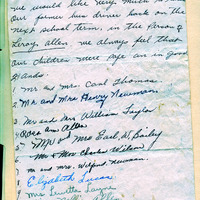 we would like very much to
our former bus driver back on the
next school term, in the Person of
Leroy Allen we always feel that
our children were safe an in good
Hands.
1 Mr and mrs. Carl Thomas.
2 Mr. and Mrs Henry Newman.
3 Mr and Mrs William Taylor
4 Rosa Ann Allen
5 Mr & Mrs Earl W. Bailey
6 Mr & Mrs Charles Wilson
7 mr and mrs. Wilford Newman.
Elizabeth Lucas
Mrs Luretta Layne